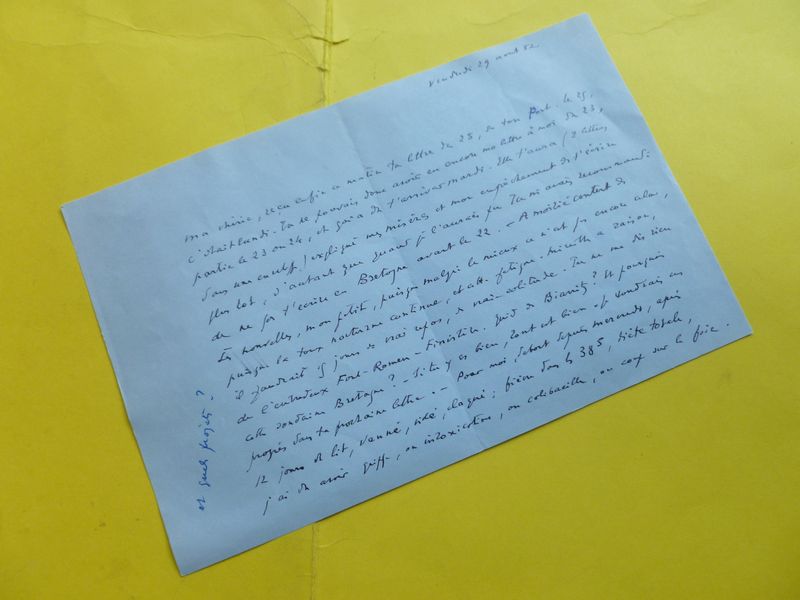 Vendredi 29 août 52
Ma chérie, reçu enfin ce matin ta lettre de 25, de ton Port. le 25,
c'était lundi. Tu ne pouvais donc avoir eu encore ma lettre à moi du 23,
partie le 23 ou 24, et qui a dû t'arriver mardi. Elle t'aura (2 lettres
dans une enveloppe!) expliqué mes misères et mon empêchement de t'écrire
plus tôt; d'autant que quand je l'aurais pu Tu m'avais recommandé
de ne pas t'écrire en Bretagne avant le 22. - A moitié content de
tes nouvelles, mon petit, puisque malgré le mieux ce n'est pas encore cela,
puisque la toux nocturne continue, et cette fatigue. a raison,
il faudrait 15 jours de vrai repos, de vraie solitude. Tu ne me dis rien
de l'entredeux Font-Romeu - Finistère. quid de Biarritz? Et pourquoi
cette soudaine Bretagne? - Si tu y es bien, tout est bien et voudrais un
progrès dans ta prochaine lettre. - Pour moi, debout depuis mercredi, après
12 jours de lit, vanné, vidé, claqué; fièvre dans les 38,5, diète totale,
j'ai dû avoir grippe, ou intoxication, ou colibacille, ou coup sur le foie.
et quels projets?